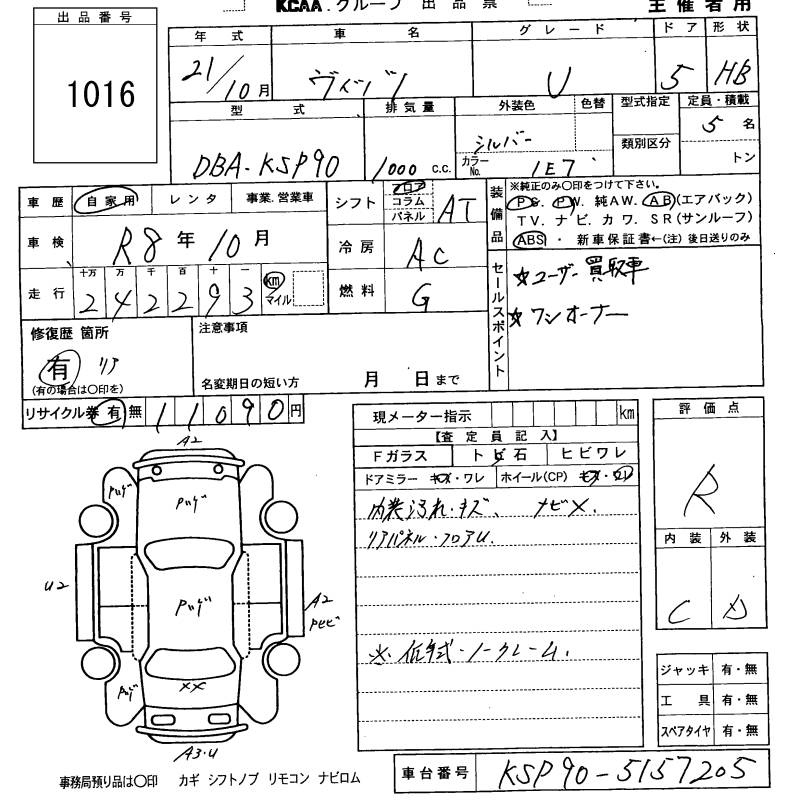 KCAA.グループ 出品票 主催者用
出品番号
1016
年式 車名 グレード ドア 形状
21/10月 ヴィッツ U 5 HB
型式 排気量 外装色 色替 型式指定 定員・積載
DBA-KSP90 1000 c.c. シルバー カラーNo. 1E7 類別区分 5名
トン
車歴 自家用 レンタ 事業.営業車
車検 R8年10月
走行 十万 万 千 百 十 一
2 4 2 2 9 3 km マイル
シフト フロア コラム パネル AT
冷房 AC
燃料 G
装備品
※純正のみ〇印をつけて下さい。
P S. P W. 純AW. A B (エアバック)
T V. ナ ビ. カ ワ. S R (サンルーフ)
ABS ・ 新車保証書←(注) 後日送りのみ
セールスポイント
☆ユーザー買取車
☆ワンオーナー
修復歴 箇所
有 リア
(有の場合は〇印を)
注意事項
名変期日の短い方 月 日まで
リサイクル券 有 無 1 1 0 9 0 円
現メーター指示 km
【査定員記入】
Fガラス トビ石 ヒビワレ
ドアミラー キズ・ワレ ホイール(CP) キズ・ワレ
内装汚れ・キズ、 ナビX.
リアパネル・フロアU.
※ 低年式・ノークレーム.
評価点
R
内装 外装
C D
A2
ハゲ
ハゲ
U2
ハゲ
A2
XX
ハゲ
A3・U
ジャッキ 有・無
工具 有・無
スペアタイヤ 有・無
事務局預り品は〇印 カギ シフトノブ リモコン ナビロム
車台番号 KSP90-5157205